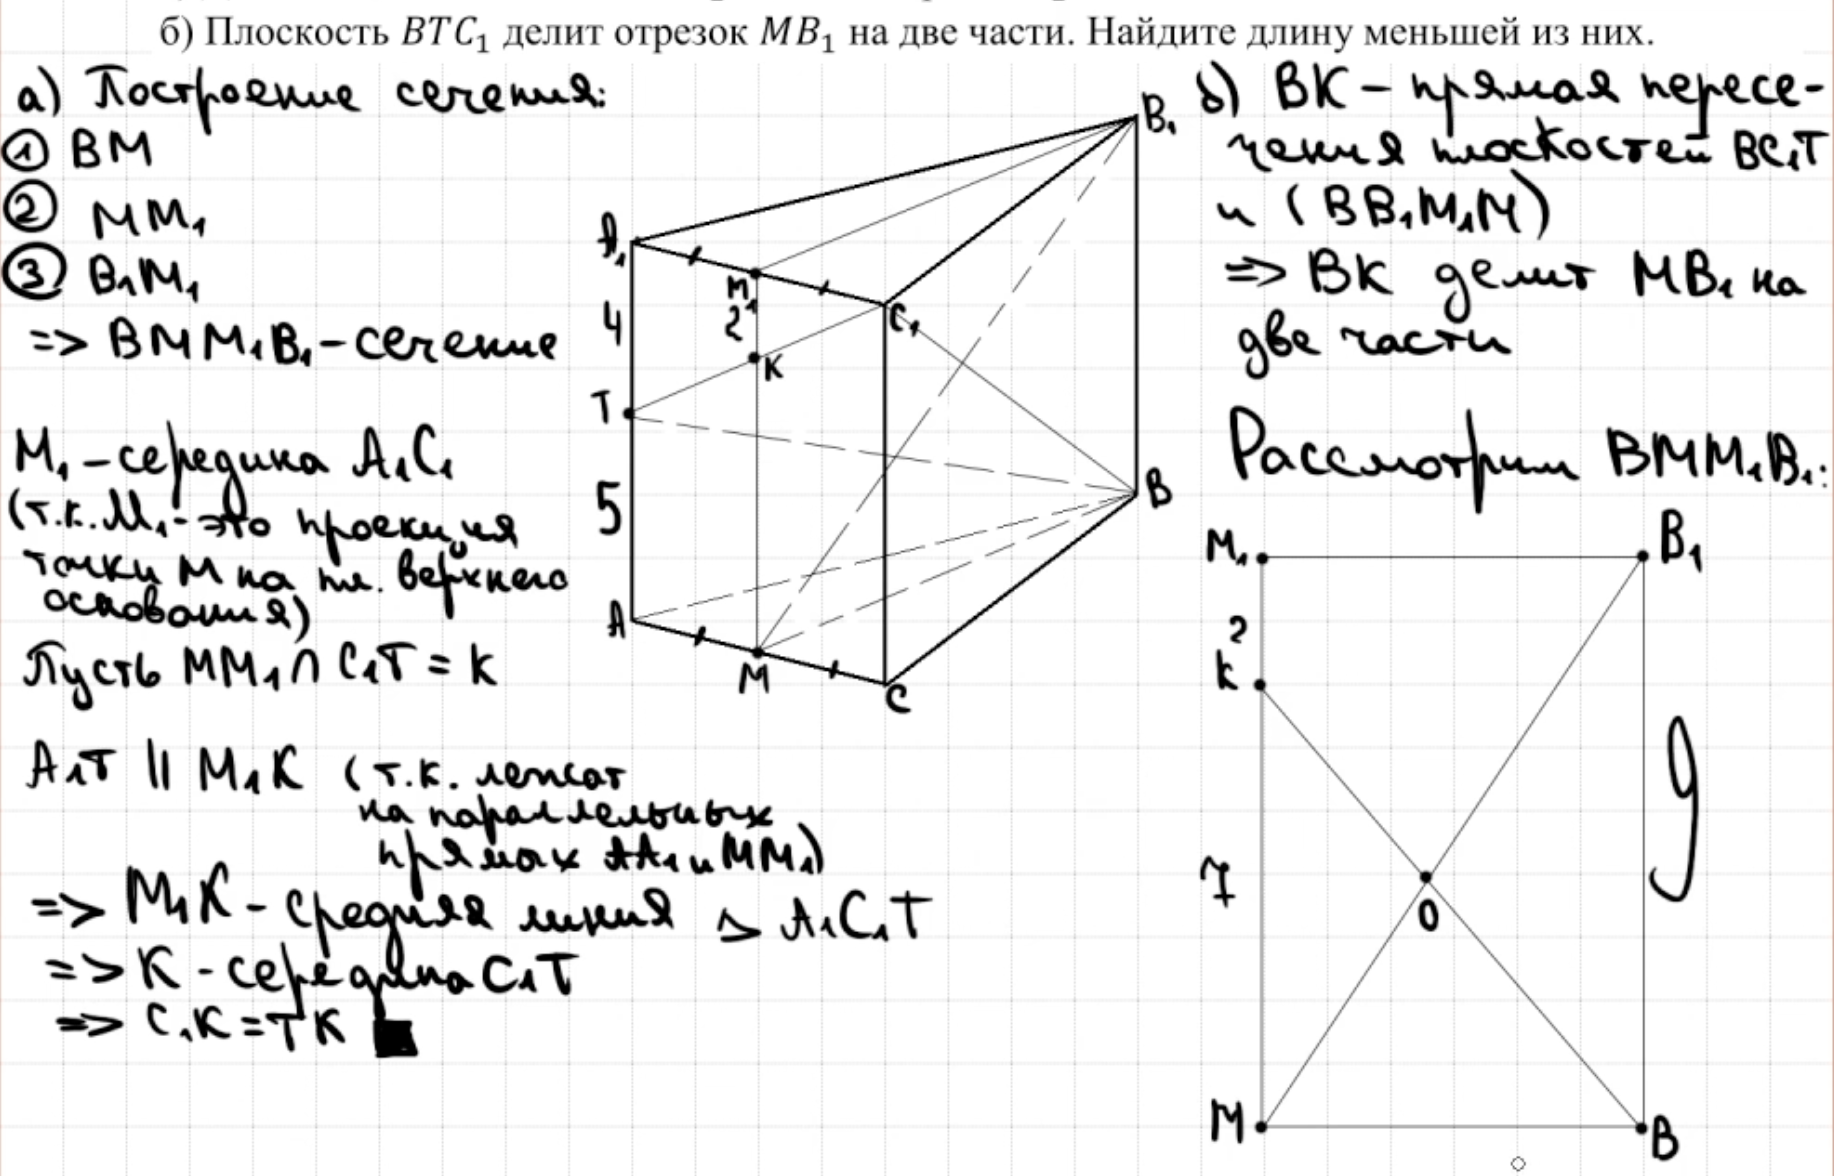 б) Плоскость BTC₁ делит отрезок MB₁ на две части. Найдите длину меньшей из них.
а) Построение сечения:
① BM
② MM₁
③ B₁M₁
=> BMM₁B₁ - сечение
M₁ - середина A₁C₁
(т.к. M₁ - это проекция
точки M на пл. верхнего
основания)
Пусть MM₁ ∩ C₁T = K
A₁T || M₁K (т.к. лежат
на параллельных
прямых AA₁ и MM₁)
=> M₁K - средняя линия △ A₁C₁T
=> K - середина C₁T
=> C₁K = TK ■
B₁
A₁
M₁
C₁
4
2
K
T
5
B
A
M
C
б) BK - прямая пересе-
чения плоскостей BC₁T
и (BB₁M₁M)
=> BK делит MB₁ на
две части
Рассмотрим BMM₁B₁:
M₁
B₁
2
K
9
7
O
M
B